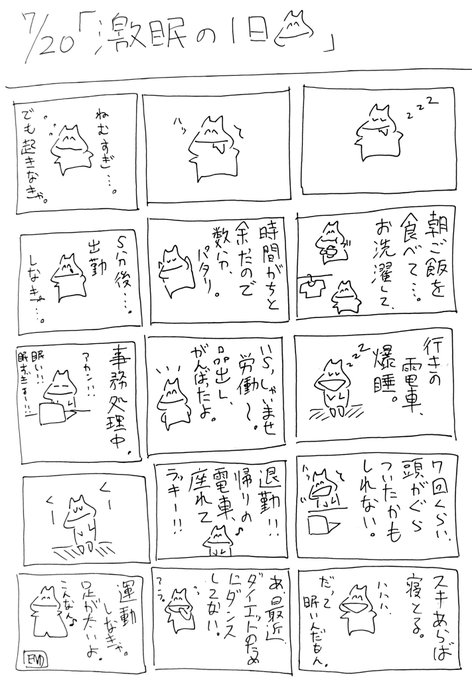 7/20「激眠の1日」
zzz
ハッ
ねむすぎ…。
でも起きなきゃ。
朝ご飯を
食べて…。
お洗濯して、
時間がちと
余だので
数分、
パタリ。
5分後…。
出勤
しなきゃ…。
行きの
電車、
爆睡。
zzz
いらっしゃいませ
労働〜。
品出し、
がんばたよ。
事務処理中。
アカン!!
眠い!!
眠すぎる!!
7回くらい、
頭がぐら
ついたかも
しれない。
退勤!!
帰りの
電車、
座れて
ラッキー!!
ぐ
ー
ぐ
ー
スキあらば
寝とる。
ハハハ、
だって
眠いんだもん。
あ、最近、
ダイエットのため
にダンス
してない。
運動
しなきゃ。
足が太いよ。
こんなん♪
END